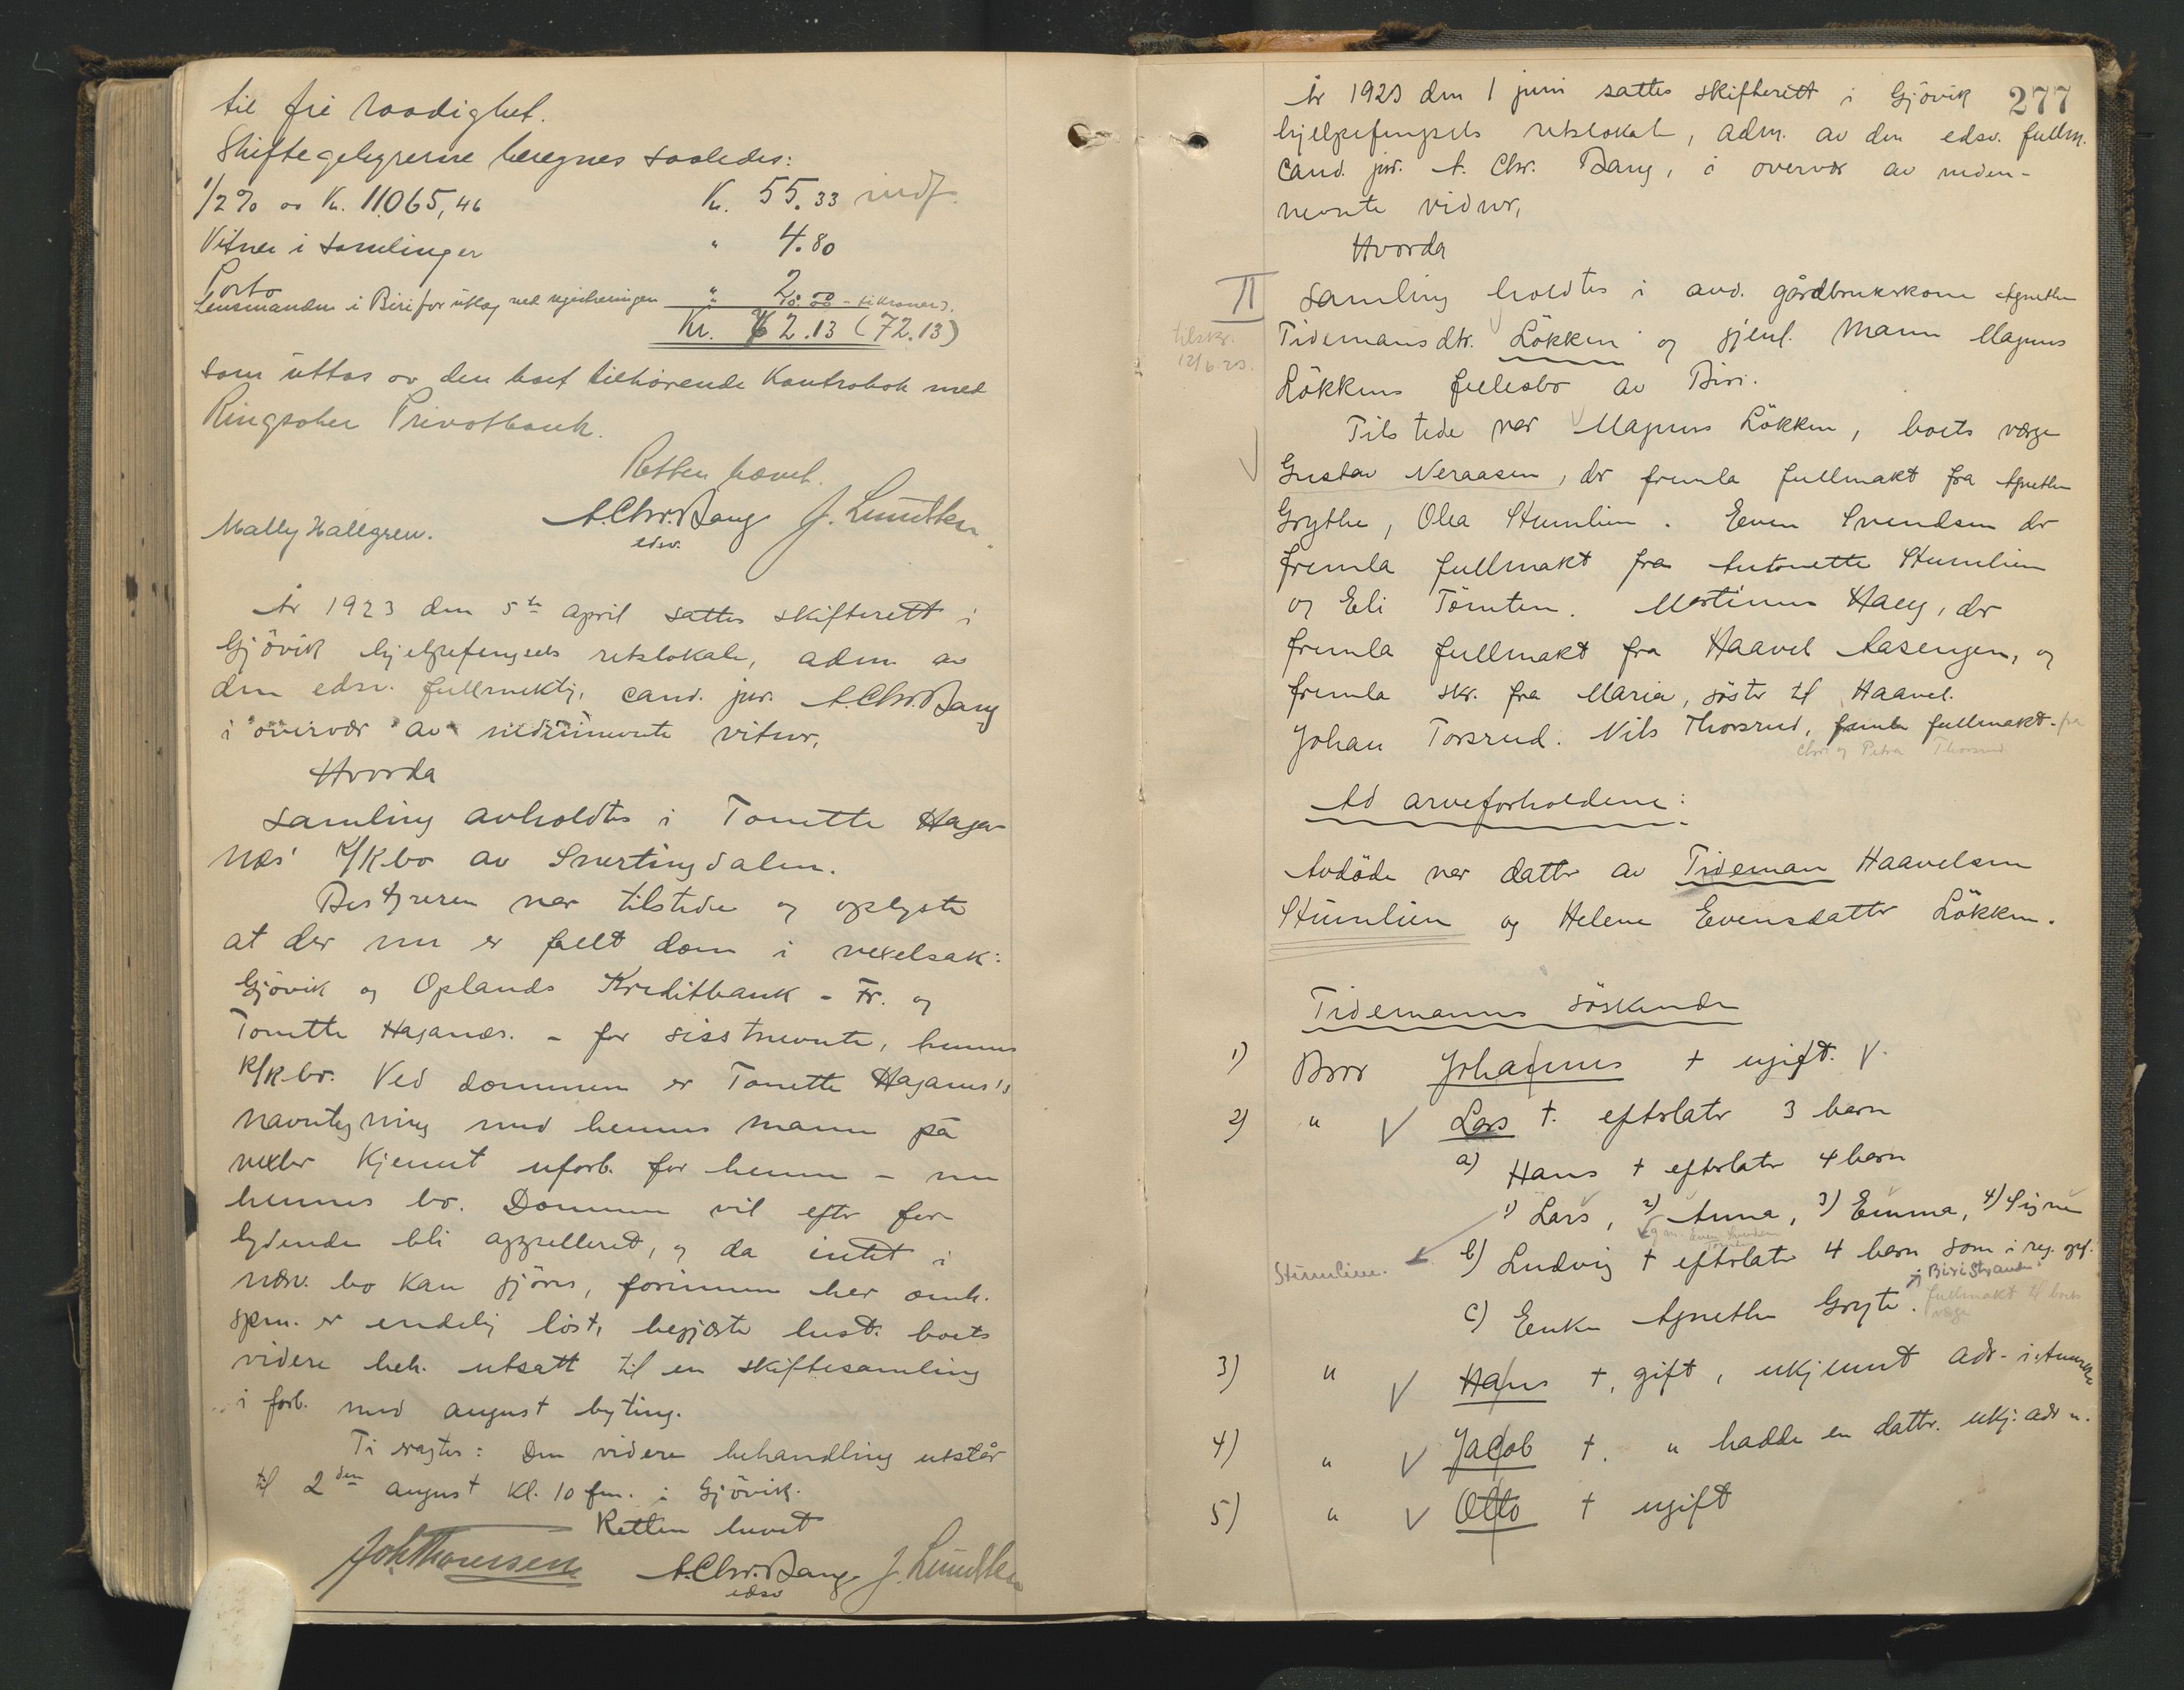 til fri raadighet.
Skiftegebyrerne beregnes saaledes:
1/2 % av Kr. 11065,46 Kr. 55.33 indf.
Vitner i samlinger " 4.80
Porto " 2.00
Lensmanden i Biri for utlæg ved registreringen " 10.00 - ti kroner.
Kr. 62.13 (72.13)
som uttas av den boet tilhørende Kontrabok med
Ringsaker Privatbank.
Retten hævet.
Mally Hallgren. A. Chr. Bang J. Lundten
edsv.
År 1923 den 5te april sattes skifterett i
Gjövik hjelpefengsels retslokale, adm. av
den edsv. fullmektig, cand. jur. A. Chr. Bang
i overvær av nedennevnte vitner,
Hvorda
samling avholdtes i Tonette Haga-
næs' k/k bo av Snertingdalen.
Bestyreren var tilstede og oplyste
at der nu er felt dom i vexelsak:
Gjövik og Oplands Kreditbank - Fr. og
Tonette Haganæs. - for sisstnevnte, hennes
k/k bo. Ved dommen er Tonette Haganæs's
navntegning med hennes mann på
vexler kjennt uforb. for henne - nu
hennes bo. Dommen vil efter for-
lydende bli appelleret, og da intet i
nærv. bo kan gjöres, forinnen her omh.
spm. er endelig löst, begjærte best. boets
videre beh. utsatt til en skiftesamling
i forb. med august byting.
Ti vagtes: Den videre behandling utstår
til 2den august kl. 10 fm. i Gjövik.
Retten hevet
Joh Thomssen A. Chr. Bang J. Lundten
edsv
277
År 1923 den 1 juni sattes skifterett i Gjövik
hjelpefengsels retslokale, adm. av den edsv. fullm.
cand. jur. A. Chr. Bang, i overvær av neden-
nevnte vidner,
Hvorda
II samling holdtes i avd. gårdbrukerkone Agnethe
tilskr. Tidemansdtr. Lökken og gjenl. mann Magnus
12/6.23.
Lökkens fellesbo av Biri.
Tilstede var Magnus Lökken, boets verge
Gustav Neraasen, der fremla fullmakt fra Agnethe
Grythe, Olea Stumlien. Even Svendsen der
fremla fullmakt fra Antonette Stumlien
og Eli Tömten. Martinus Haug, der
fremla fullmakt fra Haavel Aasengen, og
fremla skr. fra Maria, söster til Haavel.
Johan Torsrud. Nils Thorsrud, fremla fullmakt fra
Chr. og Petra Thorsrud
Ad arveforholdene:
Avdöde var datter av Tideman Haavelsen
Stumlien og Helene Evensdatter Lökken.
Tidemanns söskende
1) Bror Johannes † ugift.
2) " Lars †. efterlater 3 barn
a) Hans † efterlater 4 barn
1) Lars, 2) Anna, 3) Emma, 4) Signe
g.m. Even Svendsen Tömten
Stumlien. b) Ludvig † efterlater 4 barn som i reg. opf.
Biristranden
c) Enke Agnethe Gryte. fullmakt til boets
verge
3) " Hans †, gift, ukjennt adr. i Amerika
4) " Jacob †. " hadde en datter. ukj. adr. ".
5) " Otto † ugift